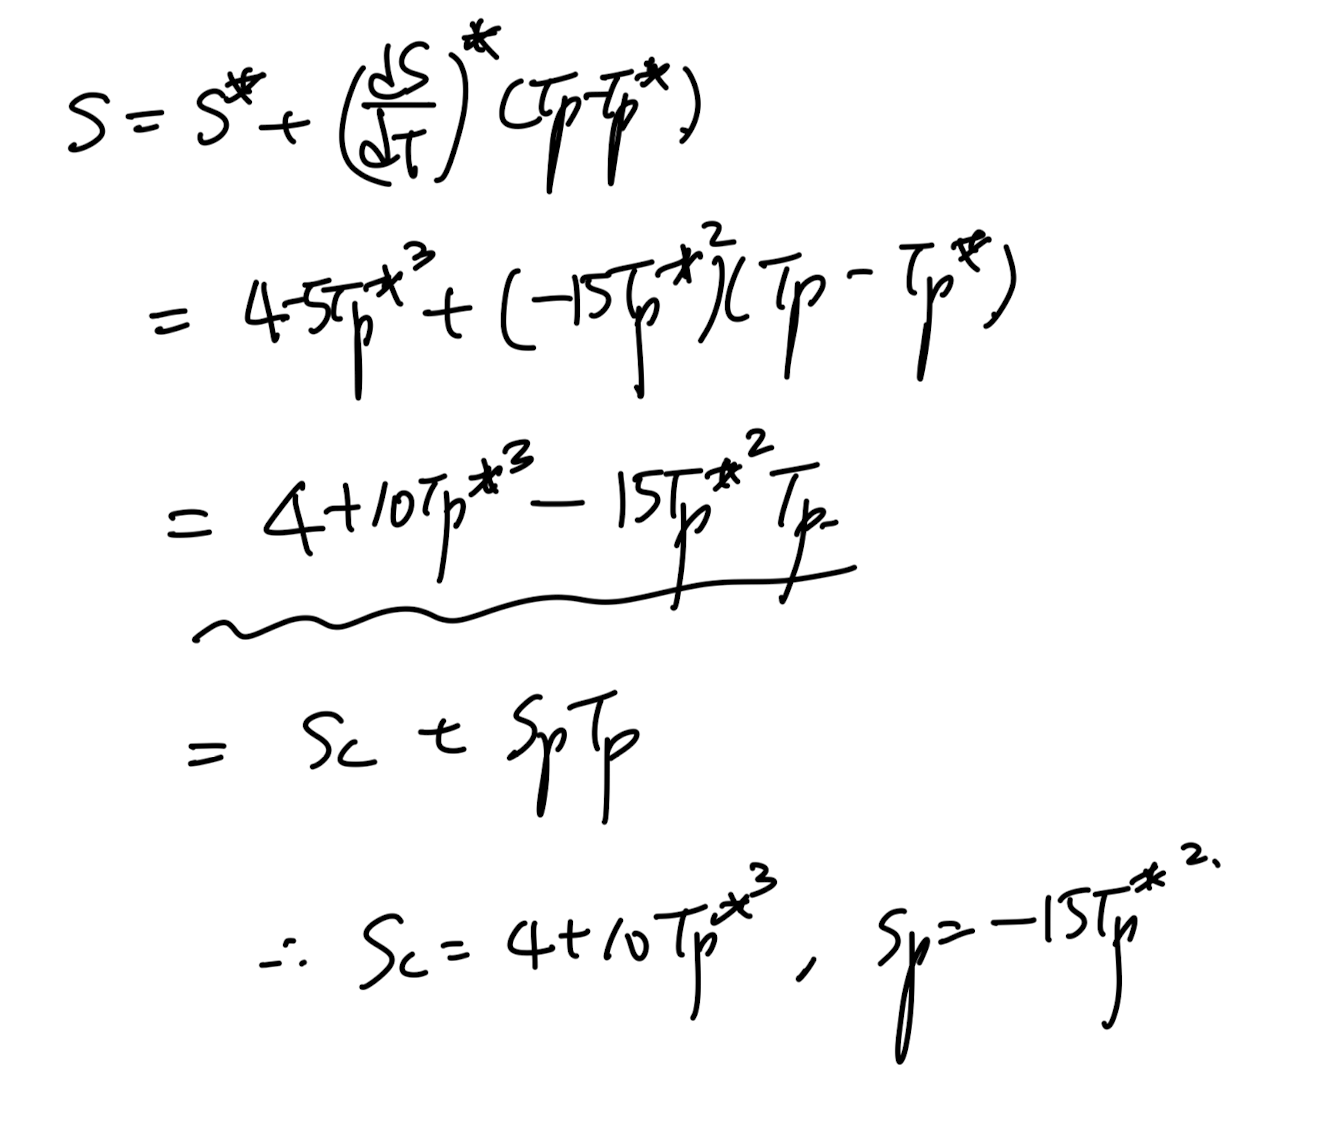 S = S* + (dS/dT)* (Tp-Tp*)
= 4-5Tp*³ + (-15Tp*²)(Tp - Tp*)
= 4+10Tp*³ - 15Tp*² Tp
= Sc + SpTp
∴ Sc = 4+10Tp*³ , Sp = -15Tp*².